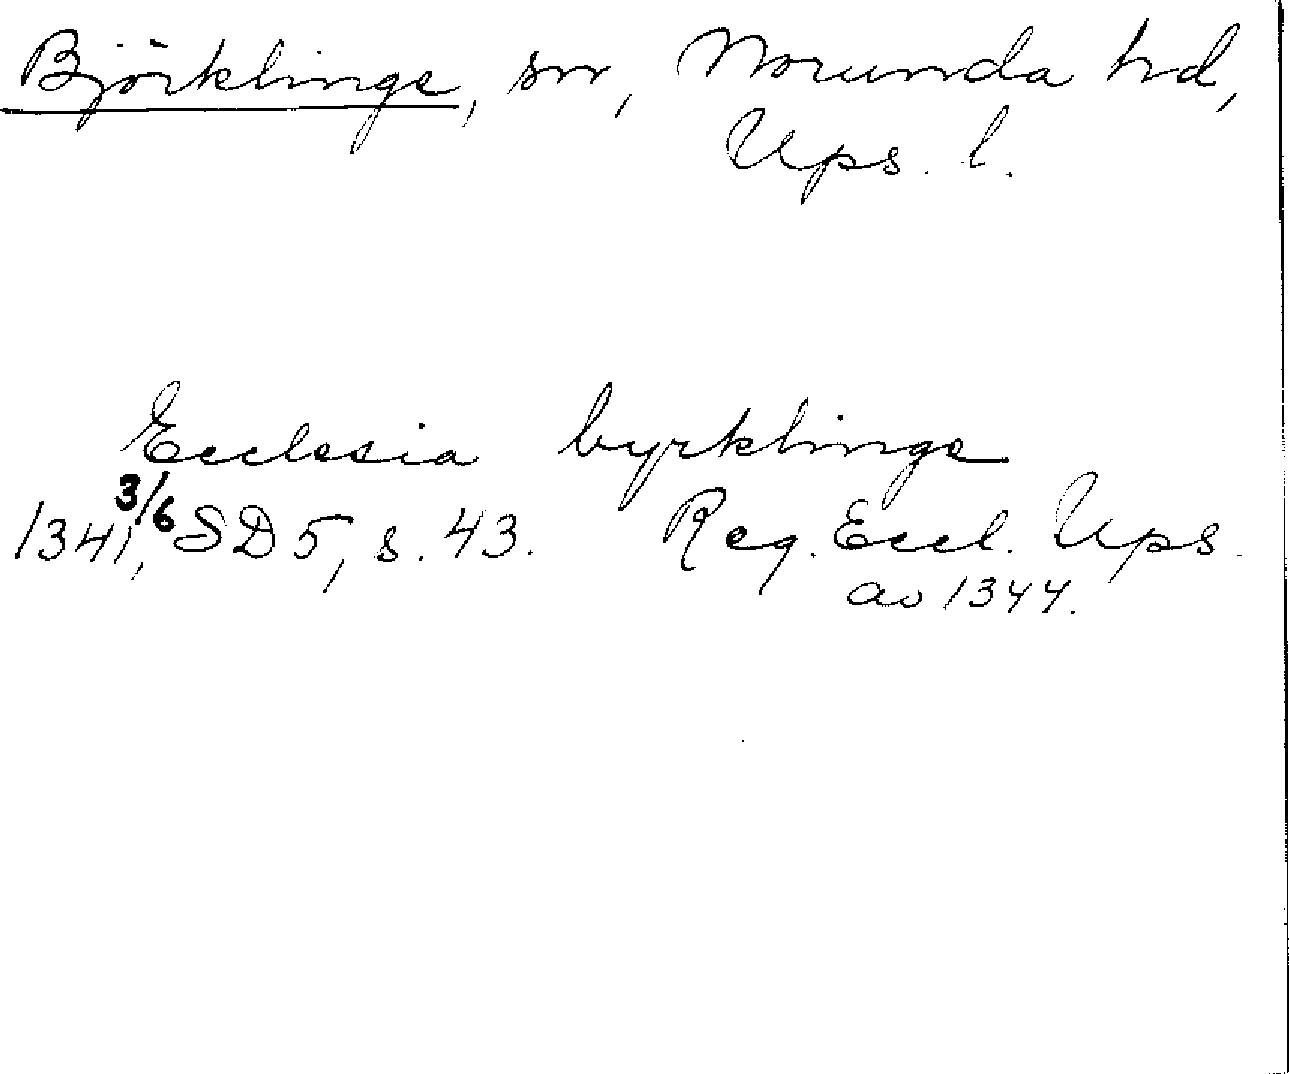 Björklinge, sn, Norunda hd,
Ups. l.
Ecclesia byrklinge
1341, 3/6 SD 5, s. 43. Reg. Eccl. Ups.
av 1344.